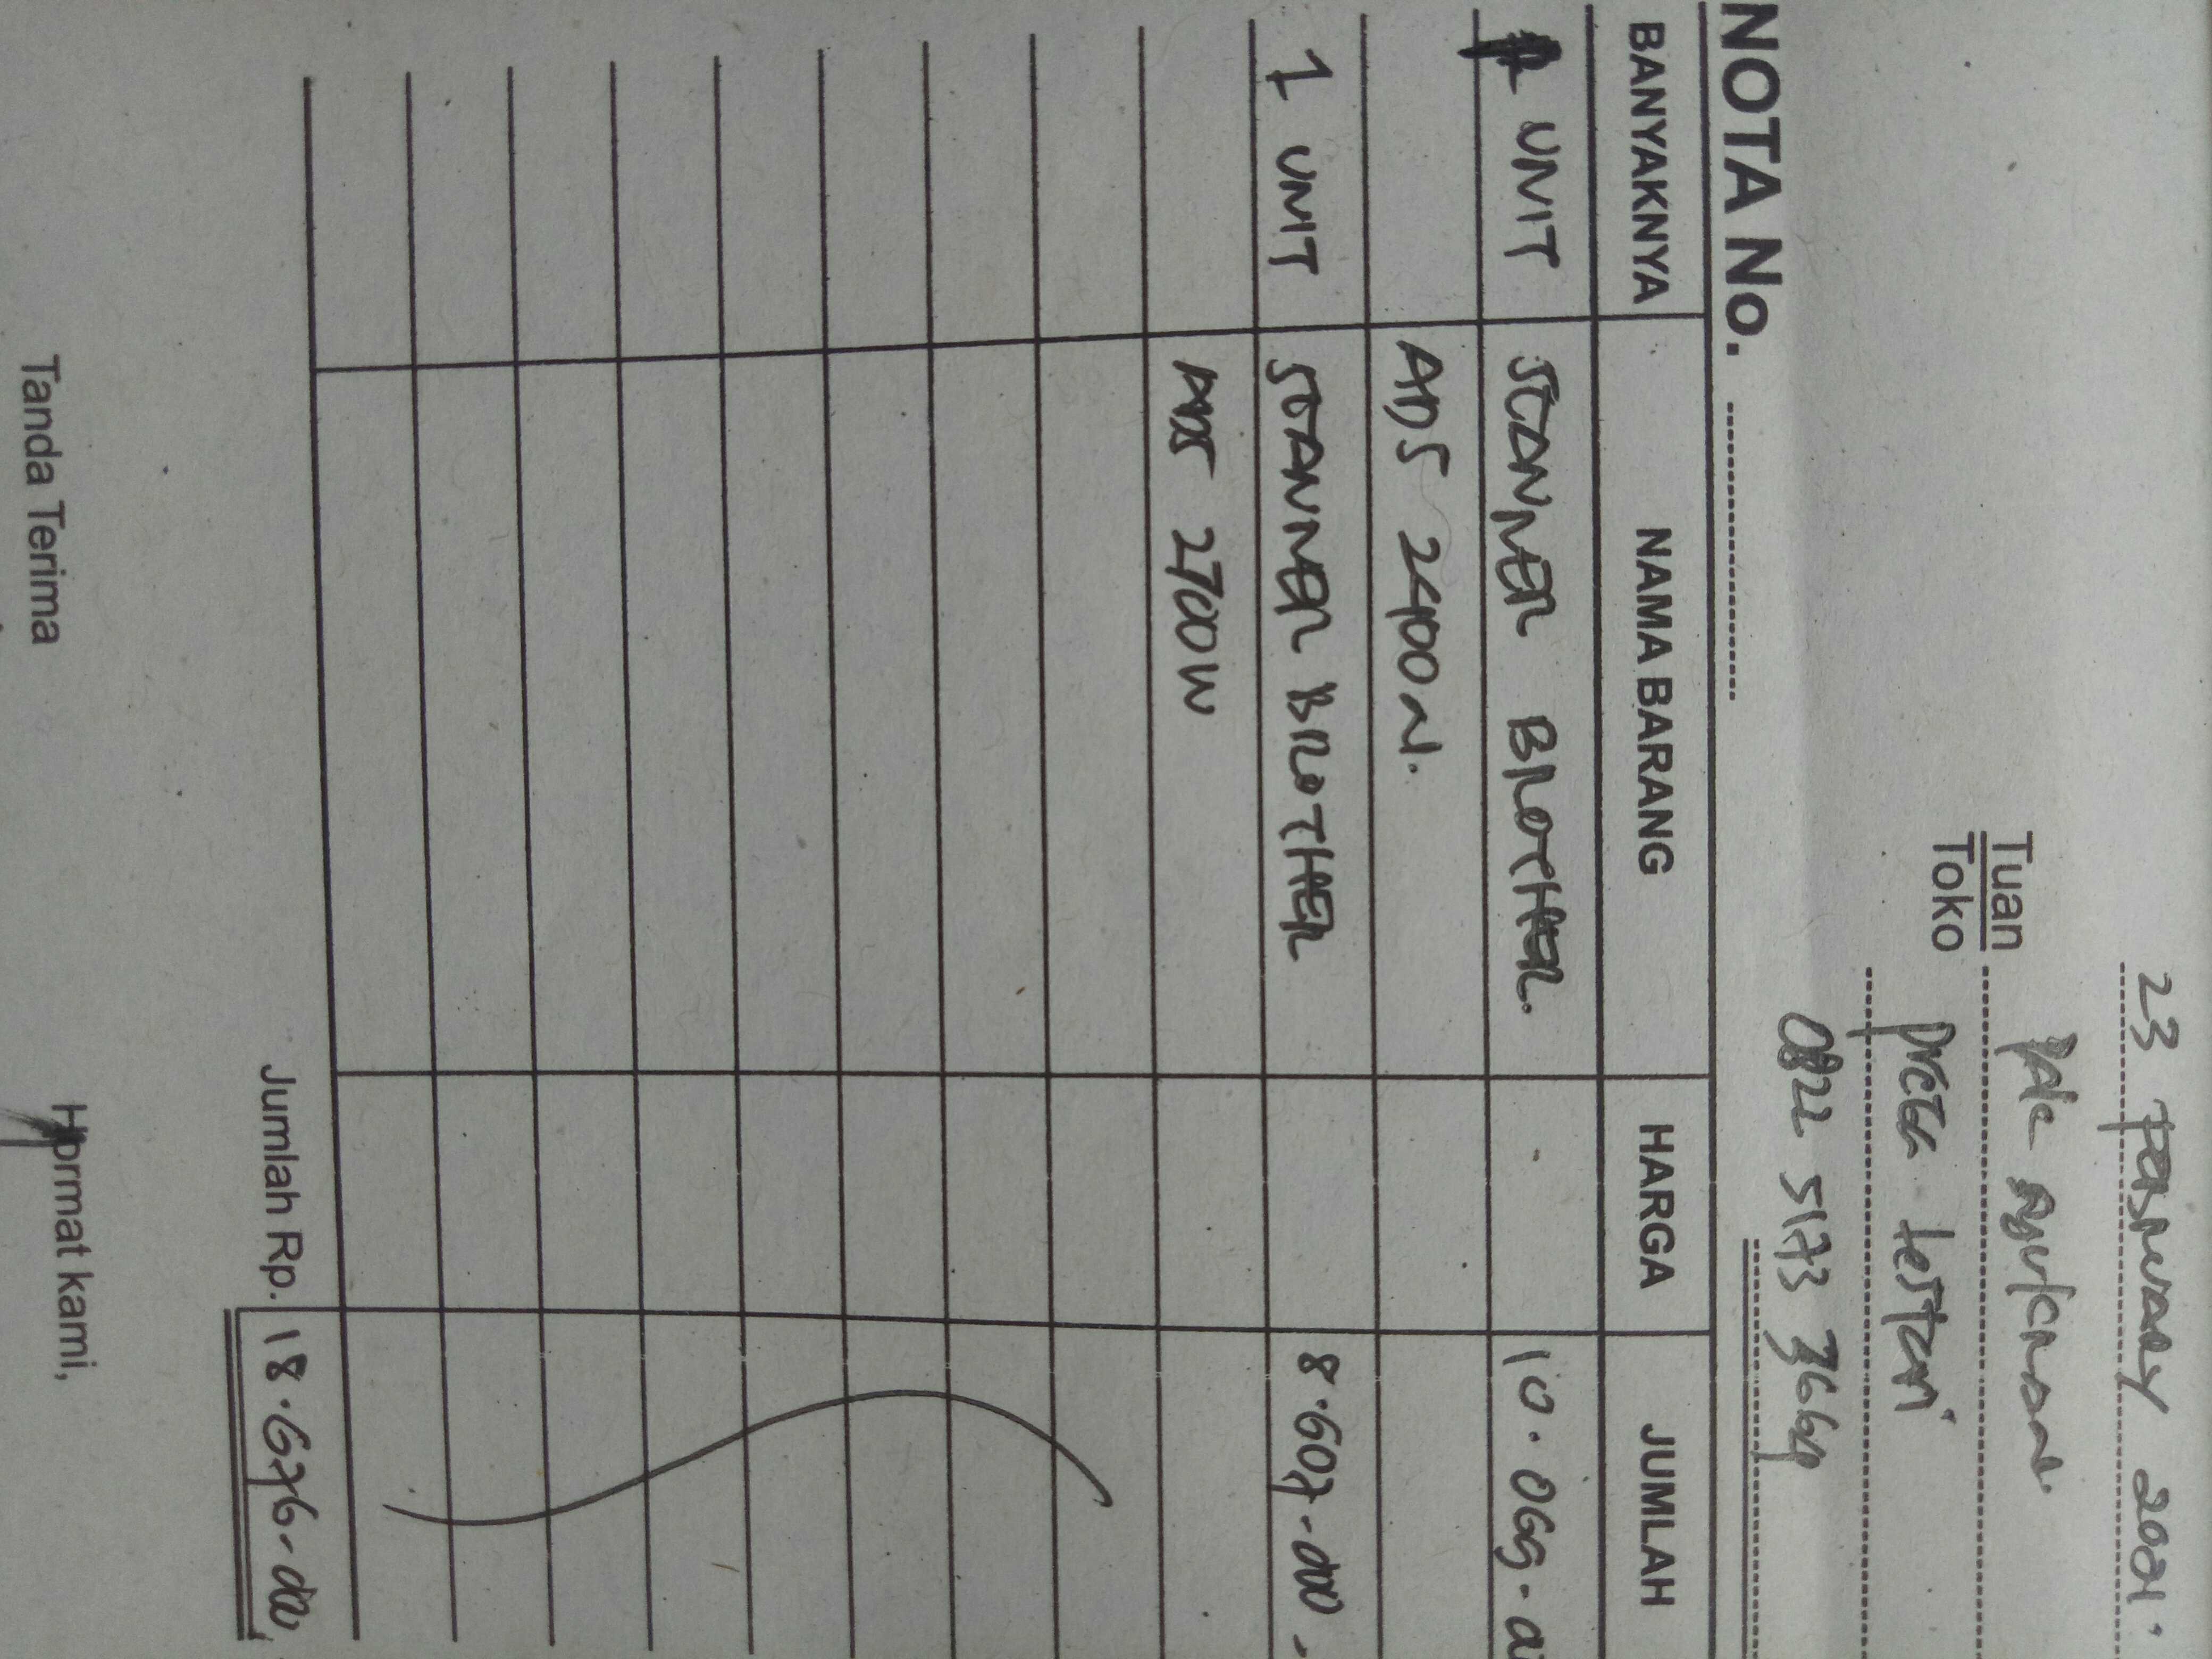 23 February 2021.
Tuan
Toko
Pak
Lestari
0822 5173 3664
NOTA No.
BANYAKNYA NAMA BARANG HARGA JUMLAH
1 UNIT SCANNER BROTHER. 10.069.
ADS 2400N.
1 UNIT SCANNER BROTHER 8.607.000
ADS 2700W
Jumlah Rp. 18.676.000
Tanda Terima Hormat kami,